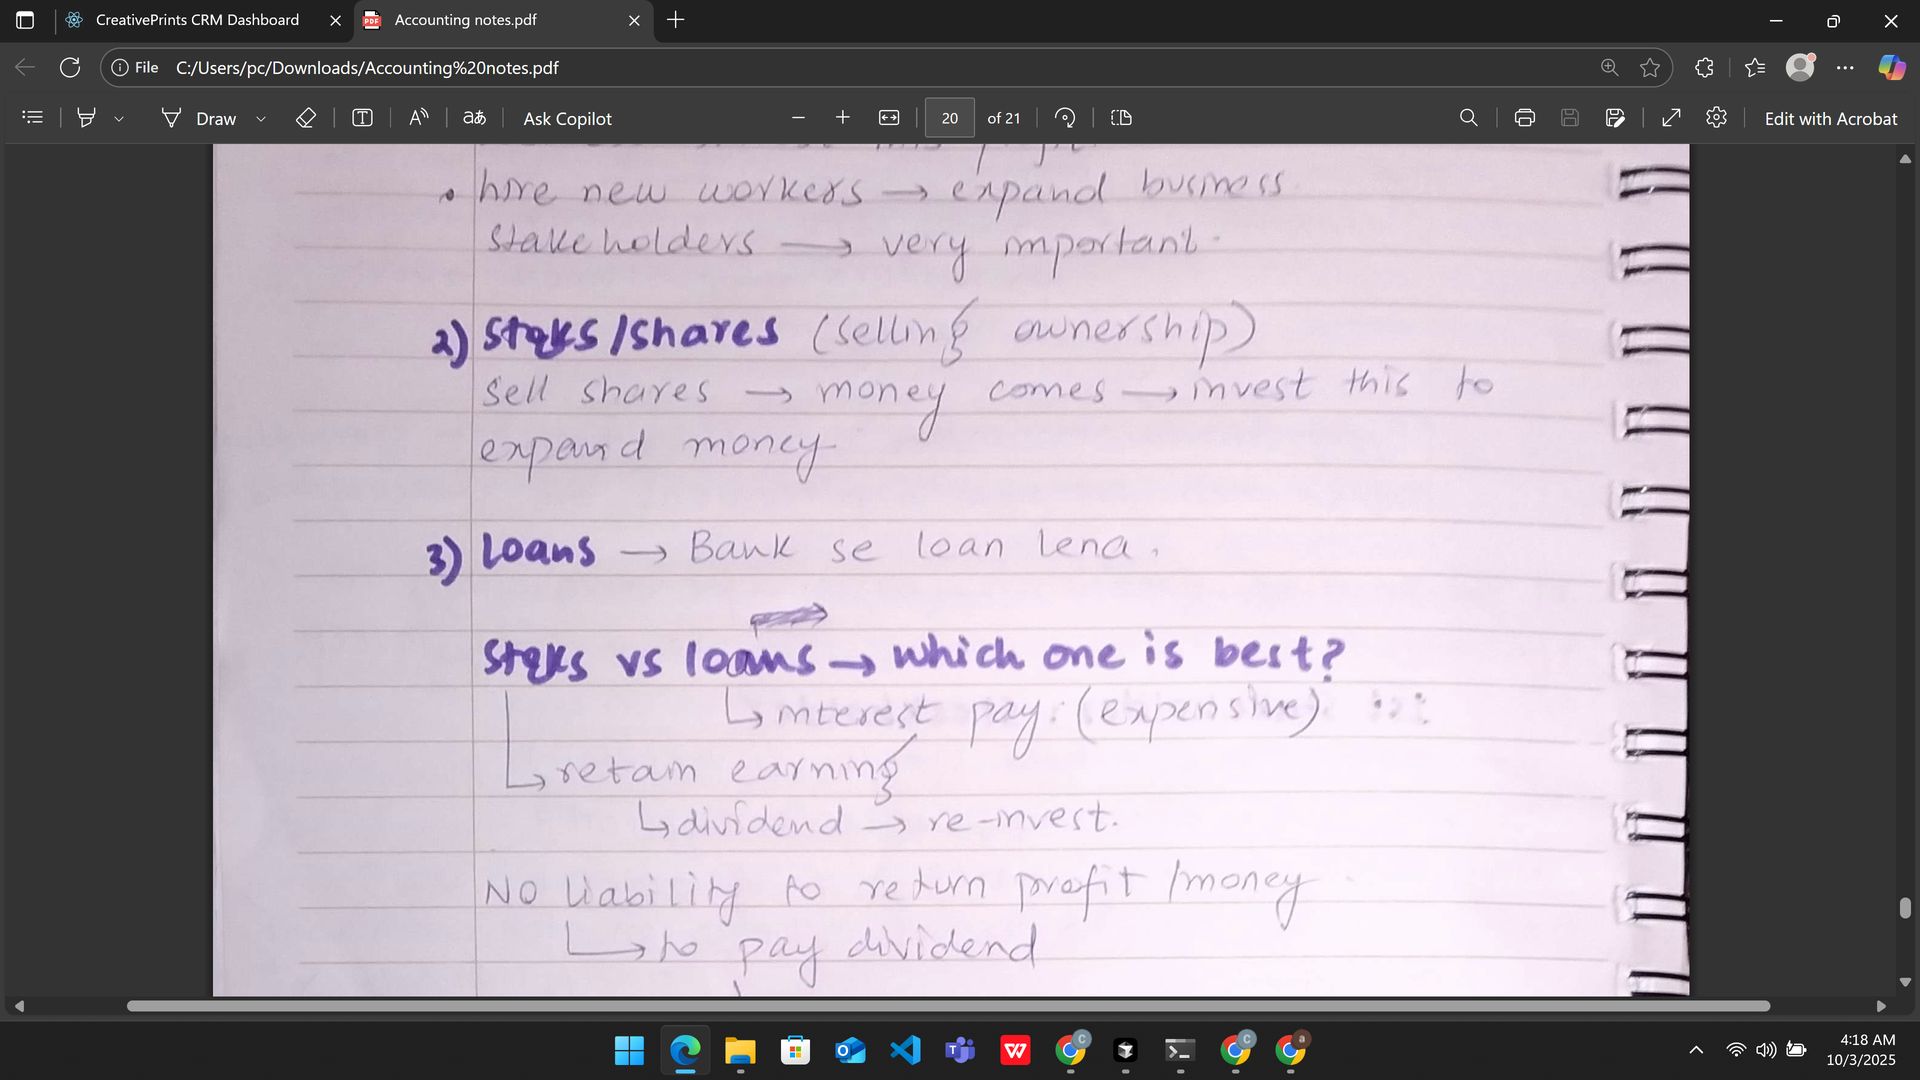 CreativePrints CRM Dashboard
Accounting notes.pdf
File
C:/Users/pc/Downloads/Accounting%20notes.pdf
Draw
Ask Copilot
20 of 21
Edit with Acrobat
. hire new workers → expand business
stakeholders → very important.
2) Stqks/shares (selling ownership)
sell shares → money comes → invest this to
expand money
3) Loans → Bank se loan lena.
Stqks vs loans → which one is best?
↳ interest pay. (expensive)
↳ retain earning
↳ dividend → re-invest.
NO liability to return profit /money
↳ to pay dividend
4:18 AM
10/3/2025